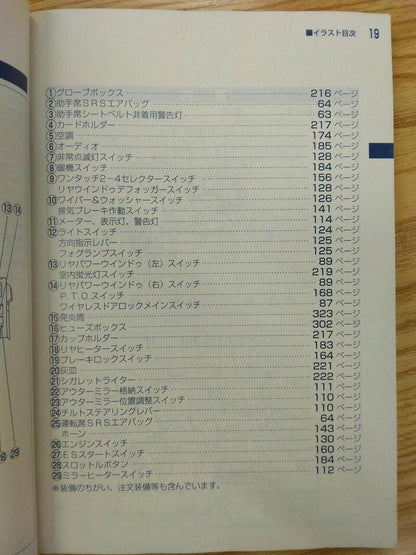 ■イラスト目次 19
①グローブボックス 216ページ
②助手席SRSエアバッグ 64ページ
③助手席シートベルト非着用警告灯 63ページ
④カードホルダー 217ページ
⑤空調 174ページ
⑥オーディオ 185ページ
⑦非常点滅灯スイッチ 128ページ
⑧暖機スイッチ 184ページ
⑨ワンタッチ2－4セレクタースイッチ 156ページ
リヤウインドゥデフォッガースイッチ 128ページ
⑩ワイパー＆ウォッシャースイッチ 126ページ
排気ブレーキ作動スイッチ 141ページ
⑪メーター、表示灯、警告灯 114ページ
⑫ライトスイッチ 124ページ
方向指示レバー 125ページ
フォグランプスイッチ 125ページ
⑬リヤパワーウインドゥ（左）スイッチ 89ページ
室内蛍光灯スイッチ 219ページ
⑭リヤパワーウインドゥ（右）スイッチ 89ページ
P.T.O.スイッチ 168ページ
ワイヤレスドアロックメインスイッチ 87ページ
⑮発炎筒 323ページ
⑯ヒューズボックス 302ページ
⑰カップホルダー 217ページ
⑱リヤヒータースイッチ 183ページ
⑲ブレーキロックスイッチ 164ページ
⑳灰皿 221ページ
㉑シガレットライター 222ページ
㉒アウターミラー格納スイッチ 111ページ
㉓アウターミラー位置調整スイッチ 110ページ
㉔チルトステアリングレバー 110ページ
㉕運転席SRSエアバッグ 64ページ
ホーン 143ページ
㉖エンジンスイッチ 130ページ
㉗ESスタートスイッチ 160ページ
㉘スロットルボタン 184ページ
㉙ミラーヒータースイッチ 112ページ
※装備のちがい、注文装備等も含んでいます。
⑬⑭
㉘㉙